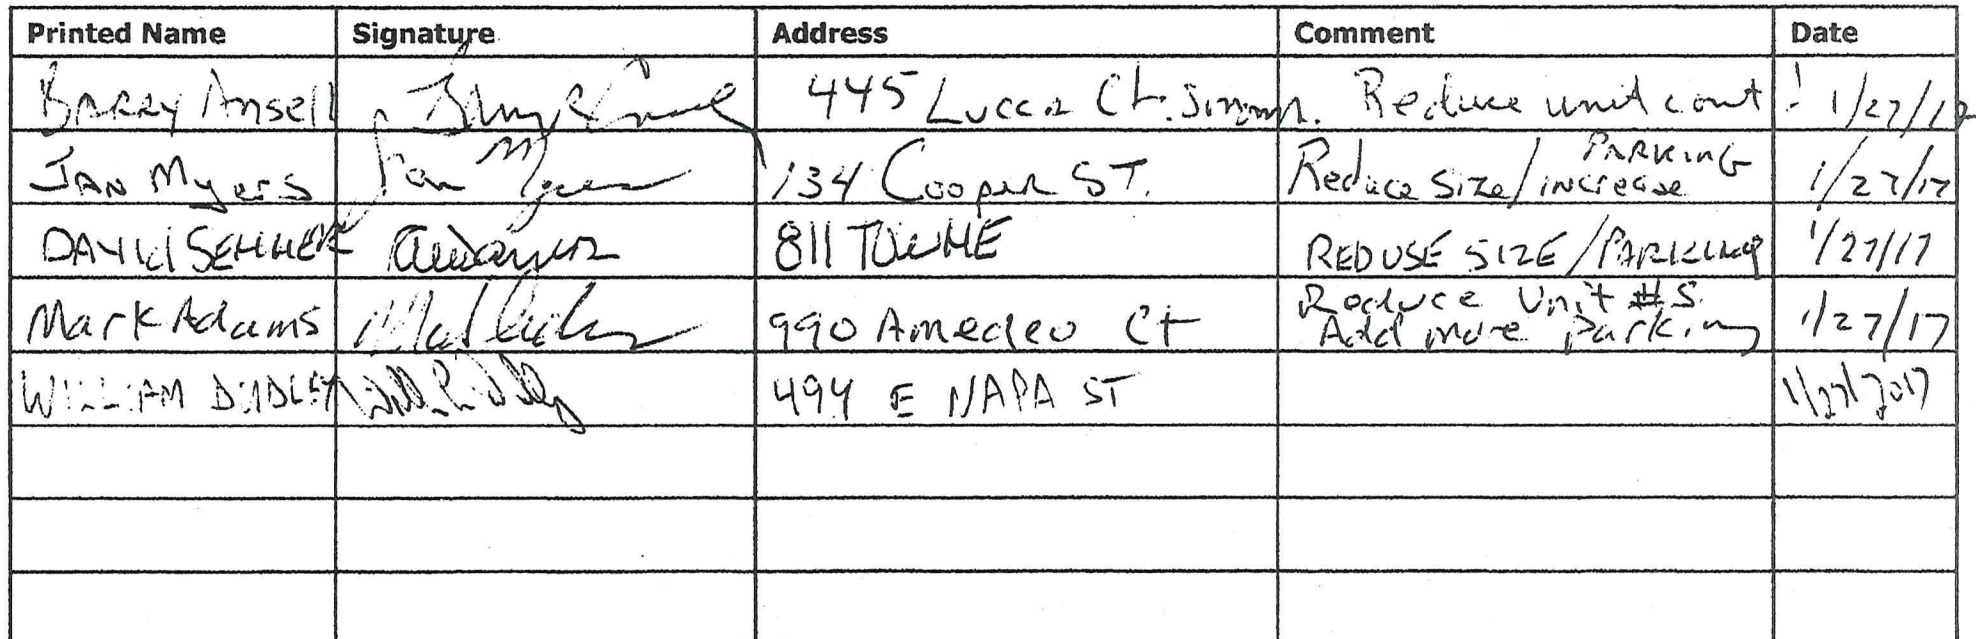 Printed Name Signature Address Comment Date
Barry Ansell 445 Lucca Ct. Reduce unit count ! 1/27/17
Jan Myers Jan Myers 134 Cooper ST. Reduce Size/increase PARKING 1/27/17
DAVID 811 TOWNE REDUSE SIZE/PARKING 1/27/17
Mark Adams 990 Amedeo Ct Reduce Unit #S. 1/27/17
Add more parking
WILLIAM DUDLEY 494 E NAPA ST 1/27/2017